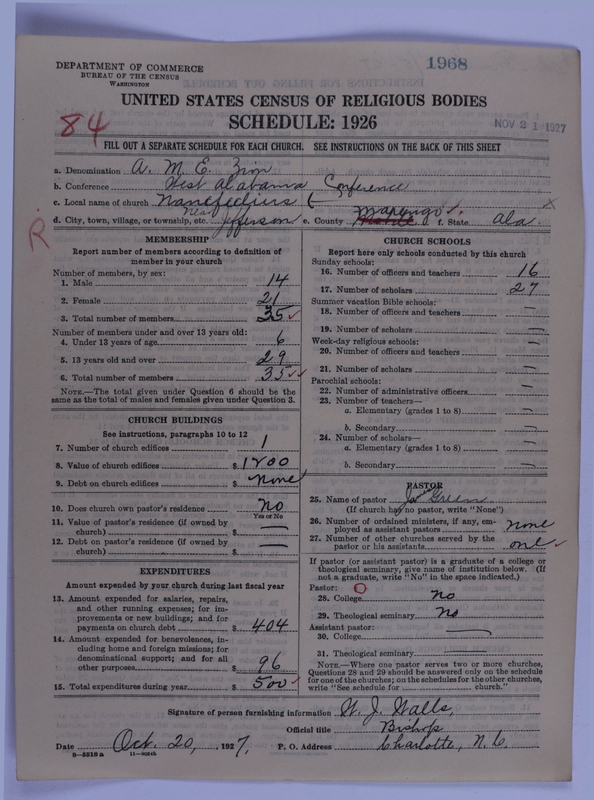 1968
DEPARTMENT OF COMMERCE
BUREAU OF THE CENSUS
WASHINGTON
UNITED STATES CENSUS OF RELIGIOUS BODIES
SCHEDULE: 1926
NOV 21 1927
84
FILL OUT A SEPARATE SCHEDULE FOR EACH CHURCH. SEE INSTRUCTIONS ON THE BACK OF THIS SHEET
a. Denomination A. M. E. Zion
b. Conference West Alabama Conference
c. Local name of church
d. City, town, village, or township, etc. near Jefferson e. County Marengo f. State Ala.
R
MEMBERSHIP
Report number of members according to definition of member in your church
Number of members, by sex:
1. Male 14
2. Female 21
3. Total number of members 35
Number of members under and over 13 years old:
4. Under 13 years of age 6
5. 13 years old and over 29
6. Total number of members 35
NOTE.—The total given under Question 6 should be the
same as the total of males and females given under Question 3.
CHURCH BUILDINGS
See instructions, paragraphs 10 to 12
7. Number of church edifices 1
8. Value of church edifices $ 1800
9. Debt on church edifices $ none
10. Does church own pastor's residence no
Yes or No
11. Value of pastor's residence (if owned by
church) $ —
12. Debt on pastor's residence (if owned by
church) $ —
EXPENDITURES
Amount expended by your church during last fiscal year
13. Amount expended for salaries, repairs,
and other running expenses; for im-
provements or new buildings; and for
payments on church debt $ 404
14. Amount expended for benevolences, in-
cluding home and foreign missions; for
denominational support; and for all
other purposes $ 96
15. Total expenditures during year $ 500
CHURCH SCHOOLS
Report here only schools conducted by this church
Sunday schools:
16. Number of officers and teachers 16
17. Number of scholars 27
Summer vacation Bible schools:
18. Number of officers and teachers —
19. Number of scholars —
Week-day religious schools:
20. Number of officers and teachers —
21. Number of scholars —
Parochial schools:
22. Number of administrative officers —
23. Number of teachers—
a. Elementary (grades 1 to 8) —
b. Secondary —
24. Number of scholars—
a. Elementary (grades 1 to 8) —
b. Secondary —
PASTOR
25. Name of pastor Green
(If church has no pastor, write "None")
26. Number of ordained ministers, if any, em-
ployed as assistant pastors none
27. Number of other churches served by the
pastor or his assistants one
If pastor (or assistant pastor) is a graduate of a college or
theological seminary, give name of institution below. (If
not a graduate, write "No" in the space indicated.)
Pastor:
28. College no
29. Theological seminary no
Assistant pastor:
30. College —
31. Theological seminary —
NOTE.—Where one pastor serves two or more churches,
Questions 28 and 29 should be answered only on the schedule
for one of the churches; on the schedules for the other churches,
write "See schedule for church."
Signature of person furnishing information W. J. Walls,
Official title Bishop
Date Oct. 20, 1927. P. O. Address Charlotte, N. C.